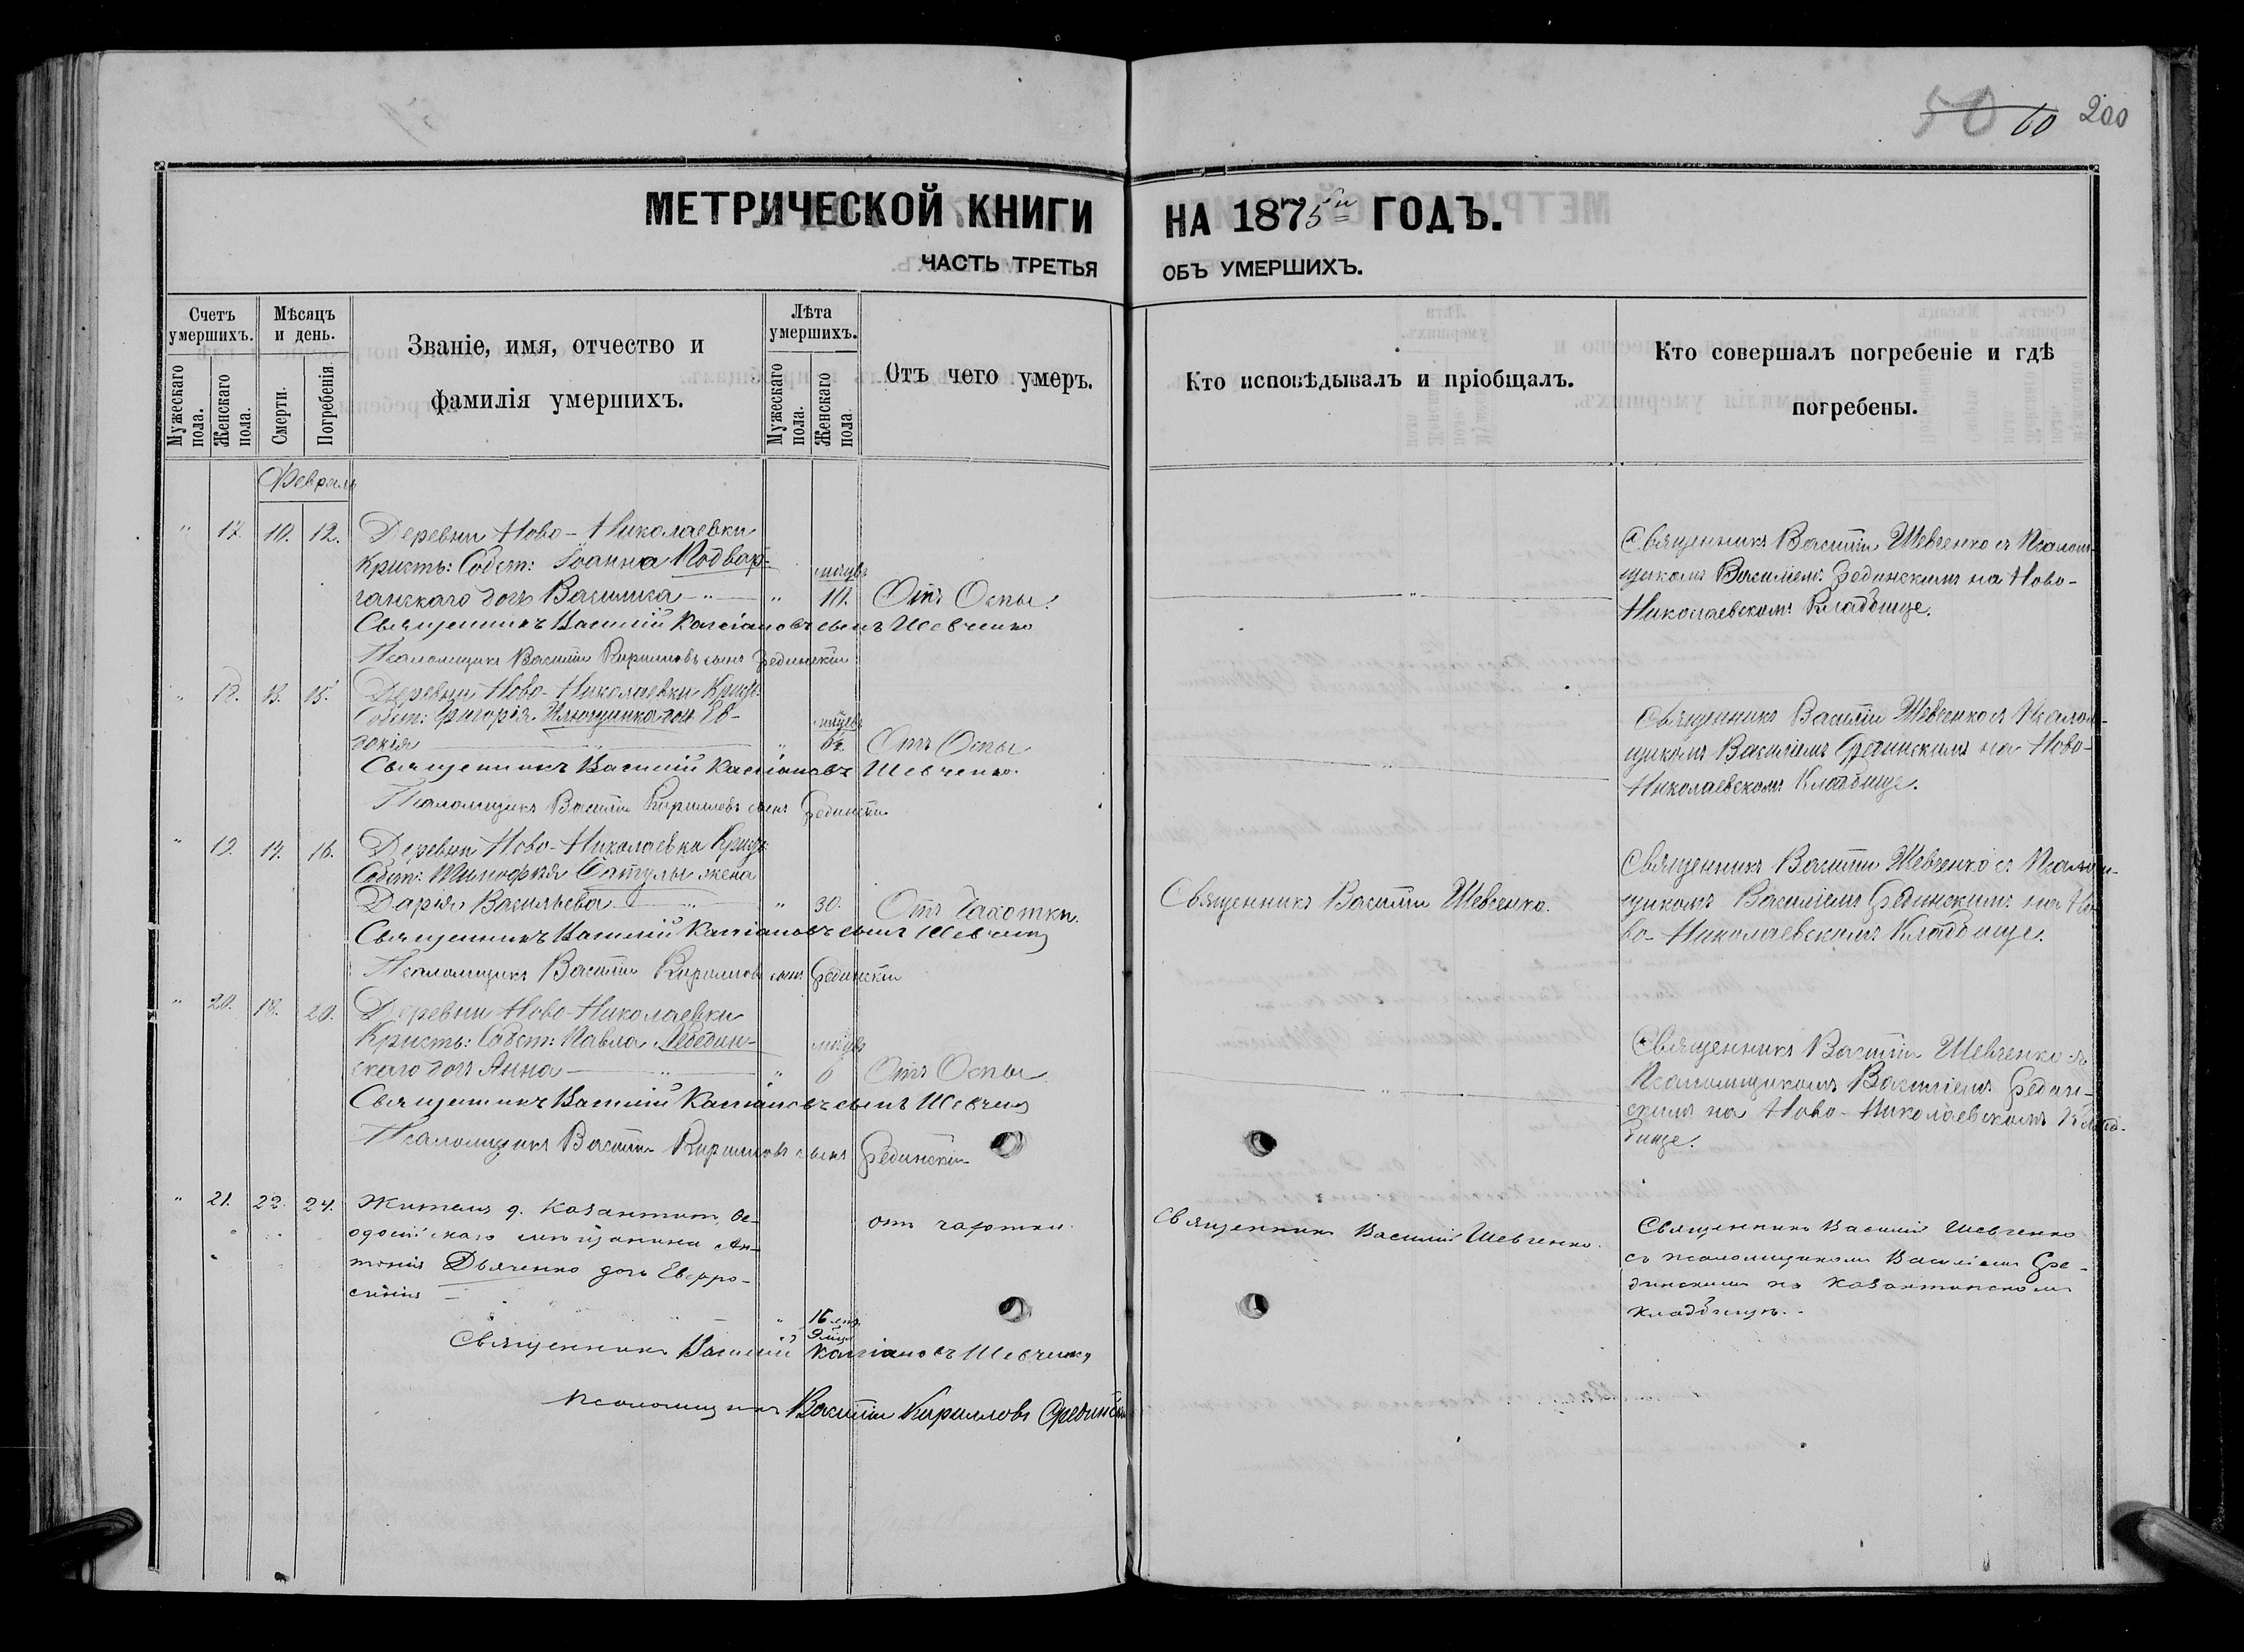 50 60 200
МЕТРИЧЕСКОЙ КНИГИ НА 1875й ГОДЪ.
ЧАСТЬ ТРЕТЬЯ ОБЪ УМЕРШИХЪ.
Счетъ умершихъ.
Мужескаго пола.
Женскаго пола.
Мѣсяцъ и день.
Смерти.
Погребенія.
Званіе, имя, отчество и
фамилія умершихъ.
Лѣта умершихъ.
Мужескаго пола.
Женскаго пола.
Отъ чего умеръ.
Кто исповѣдывалъ и пріобщалъ.
Кто совершалъ погребеніе и гдѣ
погребены.
Февраль
" 17. 10. 12. Деревни Ново-Николаевки
Кристь: Собст: Іоанна Подвор-
ганскаго дочь Василиса " " 10. Отъ Оспы.
Священникъ Василій Касіановъ сынъ Шевченко
Псаломщикъ Василій Кириловъ сынъ Срединскій
Священникъ Василій Шевченко съ Псалом-
щикомъ Василіемъ Срединскимъ на Ново-
Николаевскомъ Кладбище.
" 18. 13. 15. Деревни Ново-Николаевки
Собст: Григорія дочь Ев-
докія " " Отъ Оспы
Священникъ Василій Касіановъ Шевченко.
Псаломщикъ Василій Кириловъ сынъ Срединскій
Священникъ Василій Шевченко съ Псалом-
щикомъ Василіемъ Срединскимъ на Ново-
Николаевскомъ Кладбище.
" 19. 14. 16. Деревни Ново-Николаевки
Собст: жена
Дарія Васильева " " 30. Отъ Чахотки.
Священникъ Василій Касіановъ сынъ Шевченко
Псаломщикъ Василій Кириловъ сынъ Срединскій
Священникъ Василій Шевченко.
Священникъ Василій Шевченко съ Псаломщи-
щикомъ Василіемъ Срединскимъ на Но-
во-Николаевскомъ Кладбище.
" 20. 18. 20. Деревни Ново-Николаевки
Кристь: Собст: Павла Лебедин-
скаго дочь Анна " " 6 Отъ Оспы
Священникъ Василій Касіановъ сынъ Шевченко
Псаломщикъ Василій Кириловъ сынъ Срединскій
Священникъ Василій Шевченко съ
Псаломщикомъ Василіемъ Средин-
скимъ на Ново-Николаевскомъ Клад-
бище.
" 21. 22. 24. Житель д. Казантип, Ѳе-
одосійскаго мѣщанина Ан-
тонія Дьяченко дочь Евфро-
синія " 16 9 отъ чахотки.
Священникъ Василій Касіановъ Шевченко
Псаломщикъ Василій Кирилловъ Срединскій
Священникъ Василій Шевченко.
Священникъ Василій Шевченко
съ псаломщикомъ Василіемъ Сре-
динскимъ на Казантипскомъ
кладбищѣ.